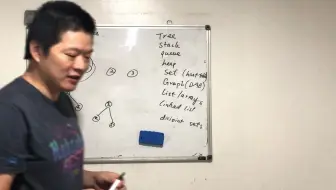 Tree
Stack
queue
heap
Set (hash
Graph (DAG)
List/arrays
linked list
disjoint sets